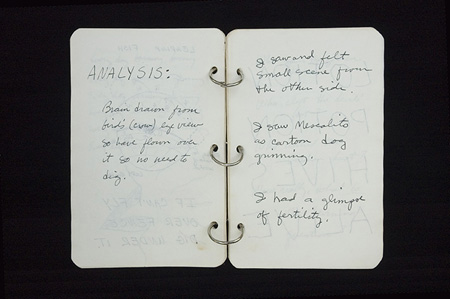 ANALYSIS:
Brain drawn from
bird's (crow) eye view
so have flown over
it so no need to
dig.
I saw and felt
small scene from
the other side.
I saw Mescalito
as cartoon dog
grinning.
I had a glimpse
of fertility.